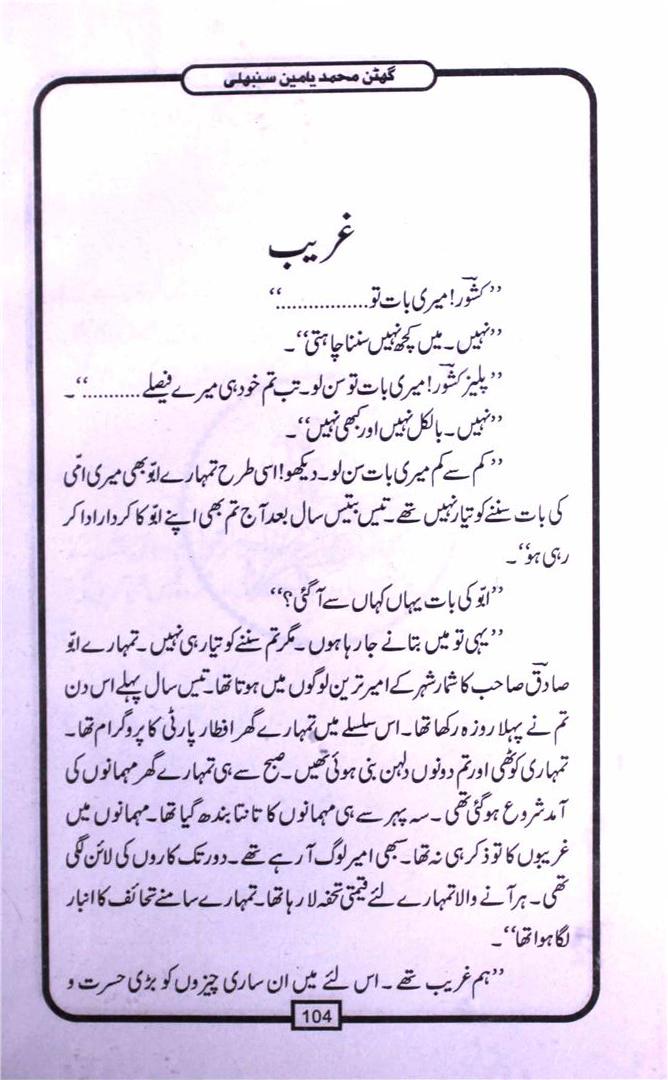 گھٹن محمد یامین سنبھلی
غریب
’’کشور! میری بات تو.................‘‘
’’نہیں۔ میں کچھ نہیں سننا چاہتی‘‘۔
’’پلیز کشور! میری بات تو سن لو۔ تب تم خود ہی میرے فیصلے ..........‘‘۔
’’نہیں۔ بالکل نہیں اور کبھی نہیں‘‘۔
’’کم سے کم میری بات سن لو۔ دیکھو! اسی طرح تمہارے ابّو بھی میری امّی
کی بات سننے کو تیار نہیں تھے۔ تیس بتیس سال بعد آج تم بھی اپنے ابّو کا کردار ادا کر
رہی ہو‘‘۔
’’ابّو کی بات یہاں کہاں سے آ گئی؟‘‘
’’یہی تو میں بتانے جا رہا ہوں۔ مگر تم سننے کو تیار ہی نہیں۔ تمہارے ابّو
صادق صاحب کا شمار شہر کے امیر ترین لوگوں میں ہوتا تھا۔ تیس سال پہلے اس دن
تم نے پہلا روزہ رکھا تھا۔ اس سلسلے میں تمہارے گھر افطار پارٹی کا پروگرام تھا۔
تمہاری کوٹھی اور تم دونوں دلہن بنی ہوئی تھیں۔ صبح سے ہی تمہارے گھر مہمانوں کی
آمد شروع ہو گئی تھی۔ سہ پہر سے ہی مہمانوں کا تانتا بندھ گیا تھا۔ مہمانوں میں
غریبوں کا تو ذکر ہی نہ تھا۔ سبھی امیر لوگ آ رہے تھے۔ دور تک کاروں کی لائن لگی
تھی۔ ہر آنے والا تمہارے لئے قیمتی تحفہ لا رہا تھا۔ تمہارے سامنے تحائف کا انبار
لگا ہوا تھا‘‘۔
’’ہم غریب تھے۔ اس لئے میں ان ساری چیزوں کو بڑی حسرت و
104